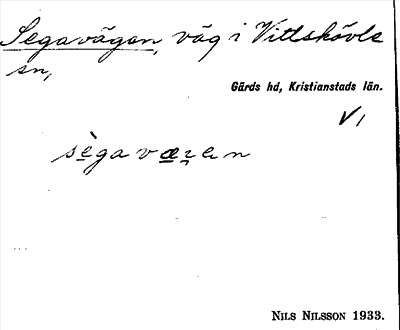 Segavägen, väg i Vittskövle
sn,
Gärds hd, Kristianstads län.
V 1
sègavæʒen
NILS NILSSON 1933.